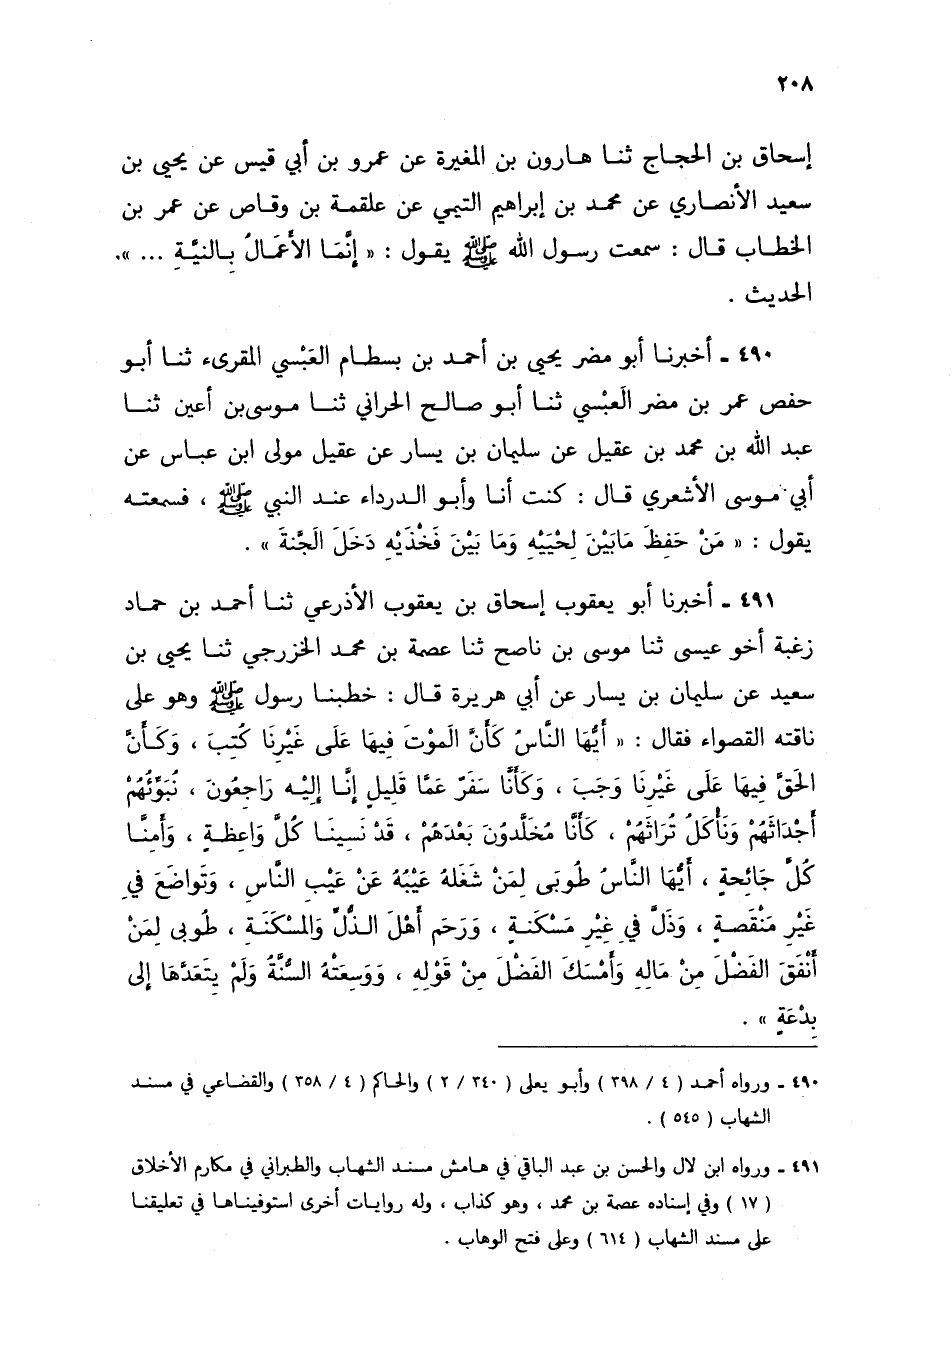 ٢٠٨
إسحاق بن الحجاج ثنا هارون بن المغيرة عن عمرو بن أبي قيس عن يحيى بن
سعيد الأنصاري عن محمد بن إبراهيم التيمي عن علقمة بن وقاص عن عمر بن
الخطاب قال : سمعت رسول الله ﷺ يقول : « إنَّمَا الأَعْمَالُ بِالنيَّةِ ... ».
الحديث .
٤٩٠ ـ أخبرنا أبو مضر يحيى بن أحمد بن بسطام العَبْسي المقرىء ثنا أبو
حفص عمر بن مضر العَبْسي ثنا أبو صالح الحراني ثنا موسى بن أعين ثنا
عبد الله بن محمد بن عقيل عن سليمان بن يسار عن عقيل مولى ابن عباس عن
أبي موسى الأشعري قال : كنت أنا وأبو الدرداء عند النبي ﷺ ، فسمعته
يقول : « مَنْ حَفِظَ مَابَيْنَ لِحْيَيْهِ وَمَا بَيْنَ فَخْذَيْهِ دَخَلَ الجَنَّةَ » .
٤٩١ ـ أخبرنا أبو يعقوب إسحاق بن يعقوب الأذرعي ثنا أحمد بن حماد
زغبة أخو عيسى ثنا موسى بن ناصح ثنا عصمة بن محمد الخزرجي ثنا يحيى بن
سعيد عن سليمان بن يسار عن أبي هريرة قال : خطبنا رسول ﷺ وهو على
ناقته القصواء فقال : « أَيُّهَا النَّاسُ كَأَنَّ المَوْتَ فِيهَا عَلَى غَيْرِنَا كُتِبَ ، وَكَأَنَّ
الحَقَّ فِيهَا عَلَى غَيْرِنَا وَجَبَ ، وَكَأَنَّا سَفَرٌ عَمَّا قَلِيلٍ إِنَّا إِلَيْهِ رَاجِعُونَ ، نُبَوِّئُهُمْ
أَجْدَاثَهُمْ وَنَأْكُلُ تُرَاثَهُمْ ، كَأَنَّا مُخَلَّدُونَ بَعْدَهُمْ ، قَدْ نَسِينَا كُلَّ وَاعِظَةٍ ، وَأَمِنَّا
كُلَّ جَائِحَةٍ ، أَيُّهَا النَّاسُ طُوبَى لِمَنْ شَغَلَهُ عَيْبُهُ عَنْ عَيْبِ النَّاسِ ، وَتَواضَعَ فِي
غَيْرِ مَنْقَصَةٍ ، وَذَلَّ فِي غِيْرِ مَسْكَنةٍ ، وَرَحَم أَهْلَ الذُّلِّ وَالمَسْكَنَةِ ، طُوبى لِمَنْ
أَنْفَقَ الفَضْلَ مِنْ مَالِهِ وَأَمْسَكَ الفَضْلَ مِنْ قَوْلِهِ ، وَوَسِعَتْهُ السُّنَّةُ وَلَمْ يتَعَدَّهَا إلى
بِدْعَةٍ » .
٤٩٠ ـ ورواه أحمد ( ٤ / ٣٩٨ ) وأبو يعلى ( ٣٤٠ / ٢ ) والحاكم ( ٤ / ٣٥٨ ) والقضاعي في مسند
الشهاب ( ٥٤٥ ) .
٤٩١ ـ ورواه ابن لال والحسن بن عبد الباقي في هامش مسند الشهاب والطبراني في مكارم الأخلاق
( ١٧ ) وفي إسناده عصمة بن محمد ، وهو كذاب ، وله روايات أخرى استوفيناها في تعليقنا
على مسند الشهاب ( ٦١٤ ) وعلى فتح الوهاب .